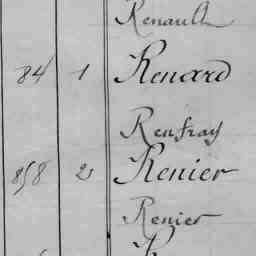 Renault
84 1 Renard
Renfray
858 2 Renier
Renier